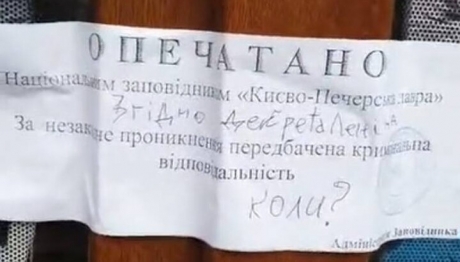 ОПЕЧАТАНО
Національним заповідником «Києво-Печерська лавра»
Згідно декрета Леніна
За незаконне проникнення передбачена кримінальна
відповідальність
коли?
Адміністрація Заповідника